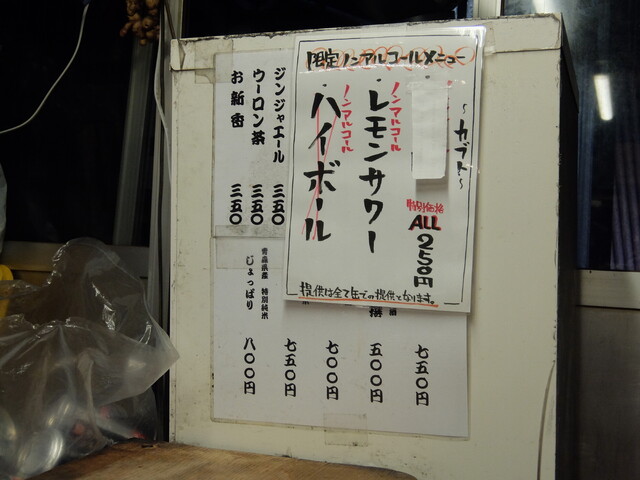 限定ノンアルコールメニュー
～カブト～
特別価格
ALL
250円
ノンアルコール
レモンサワー
ノンアルコール
ハイボール
提供は全て缶での提供となります。
ジンジャエール 三五〇
ウーロン茶 三五〇
お新香 三五〇
七五〇円
五〇〇円
七〇〇円
七五〇円
青森県産 特別純米
じょっぱり 八〇〇円